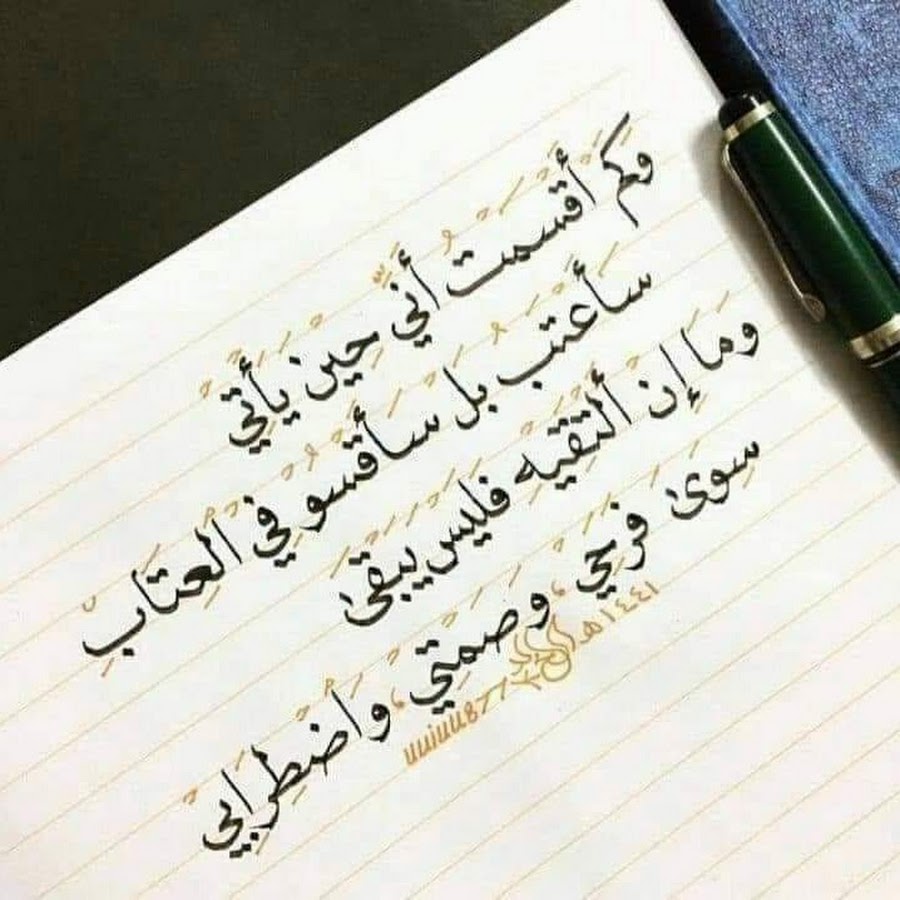 وَكَمْ أَقْسَمْتُ أَنِّي حِينَ يَأْتِي
سَأَعْتِبُ بَلْ سَأَقْسُو فِي الْعِتَابِ
وَمَا إِنْ أَلْتَقِيهِ فَلَيْسَ يَبْقَىٰ
سِوَىٰ فَرَحِي، وَصَمْتِي، وَاضْطِرَابِي
١٤٤١هـ